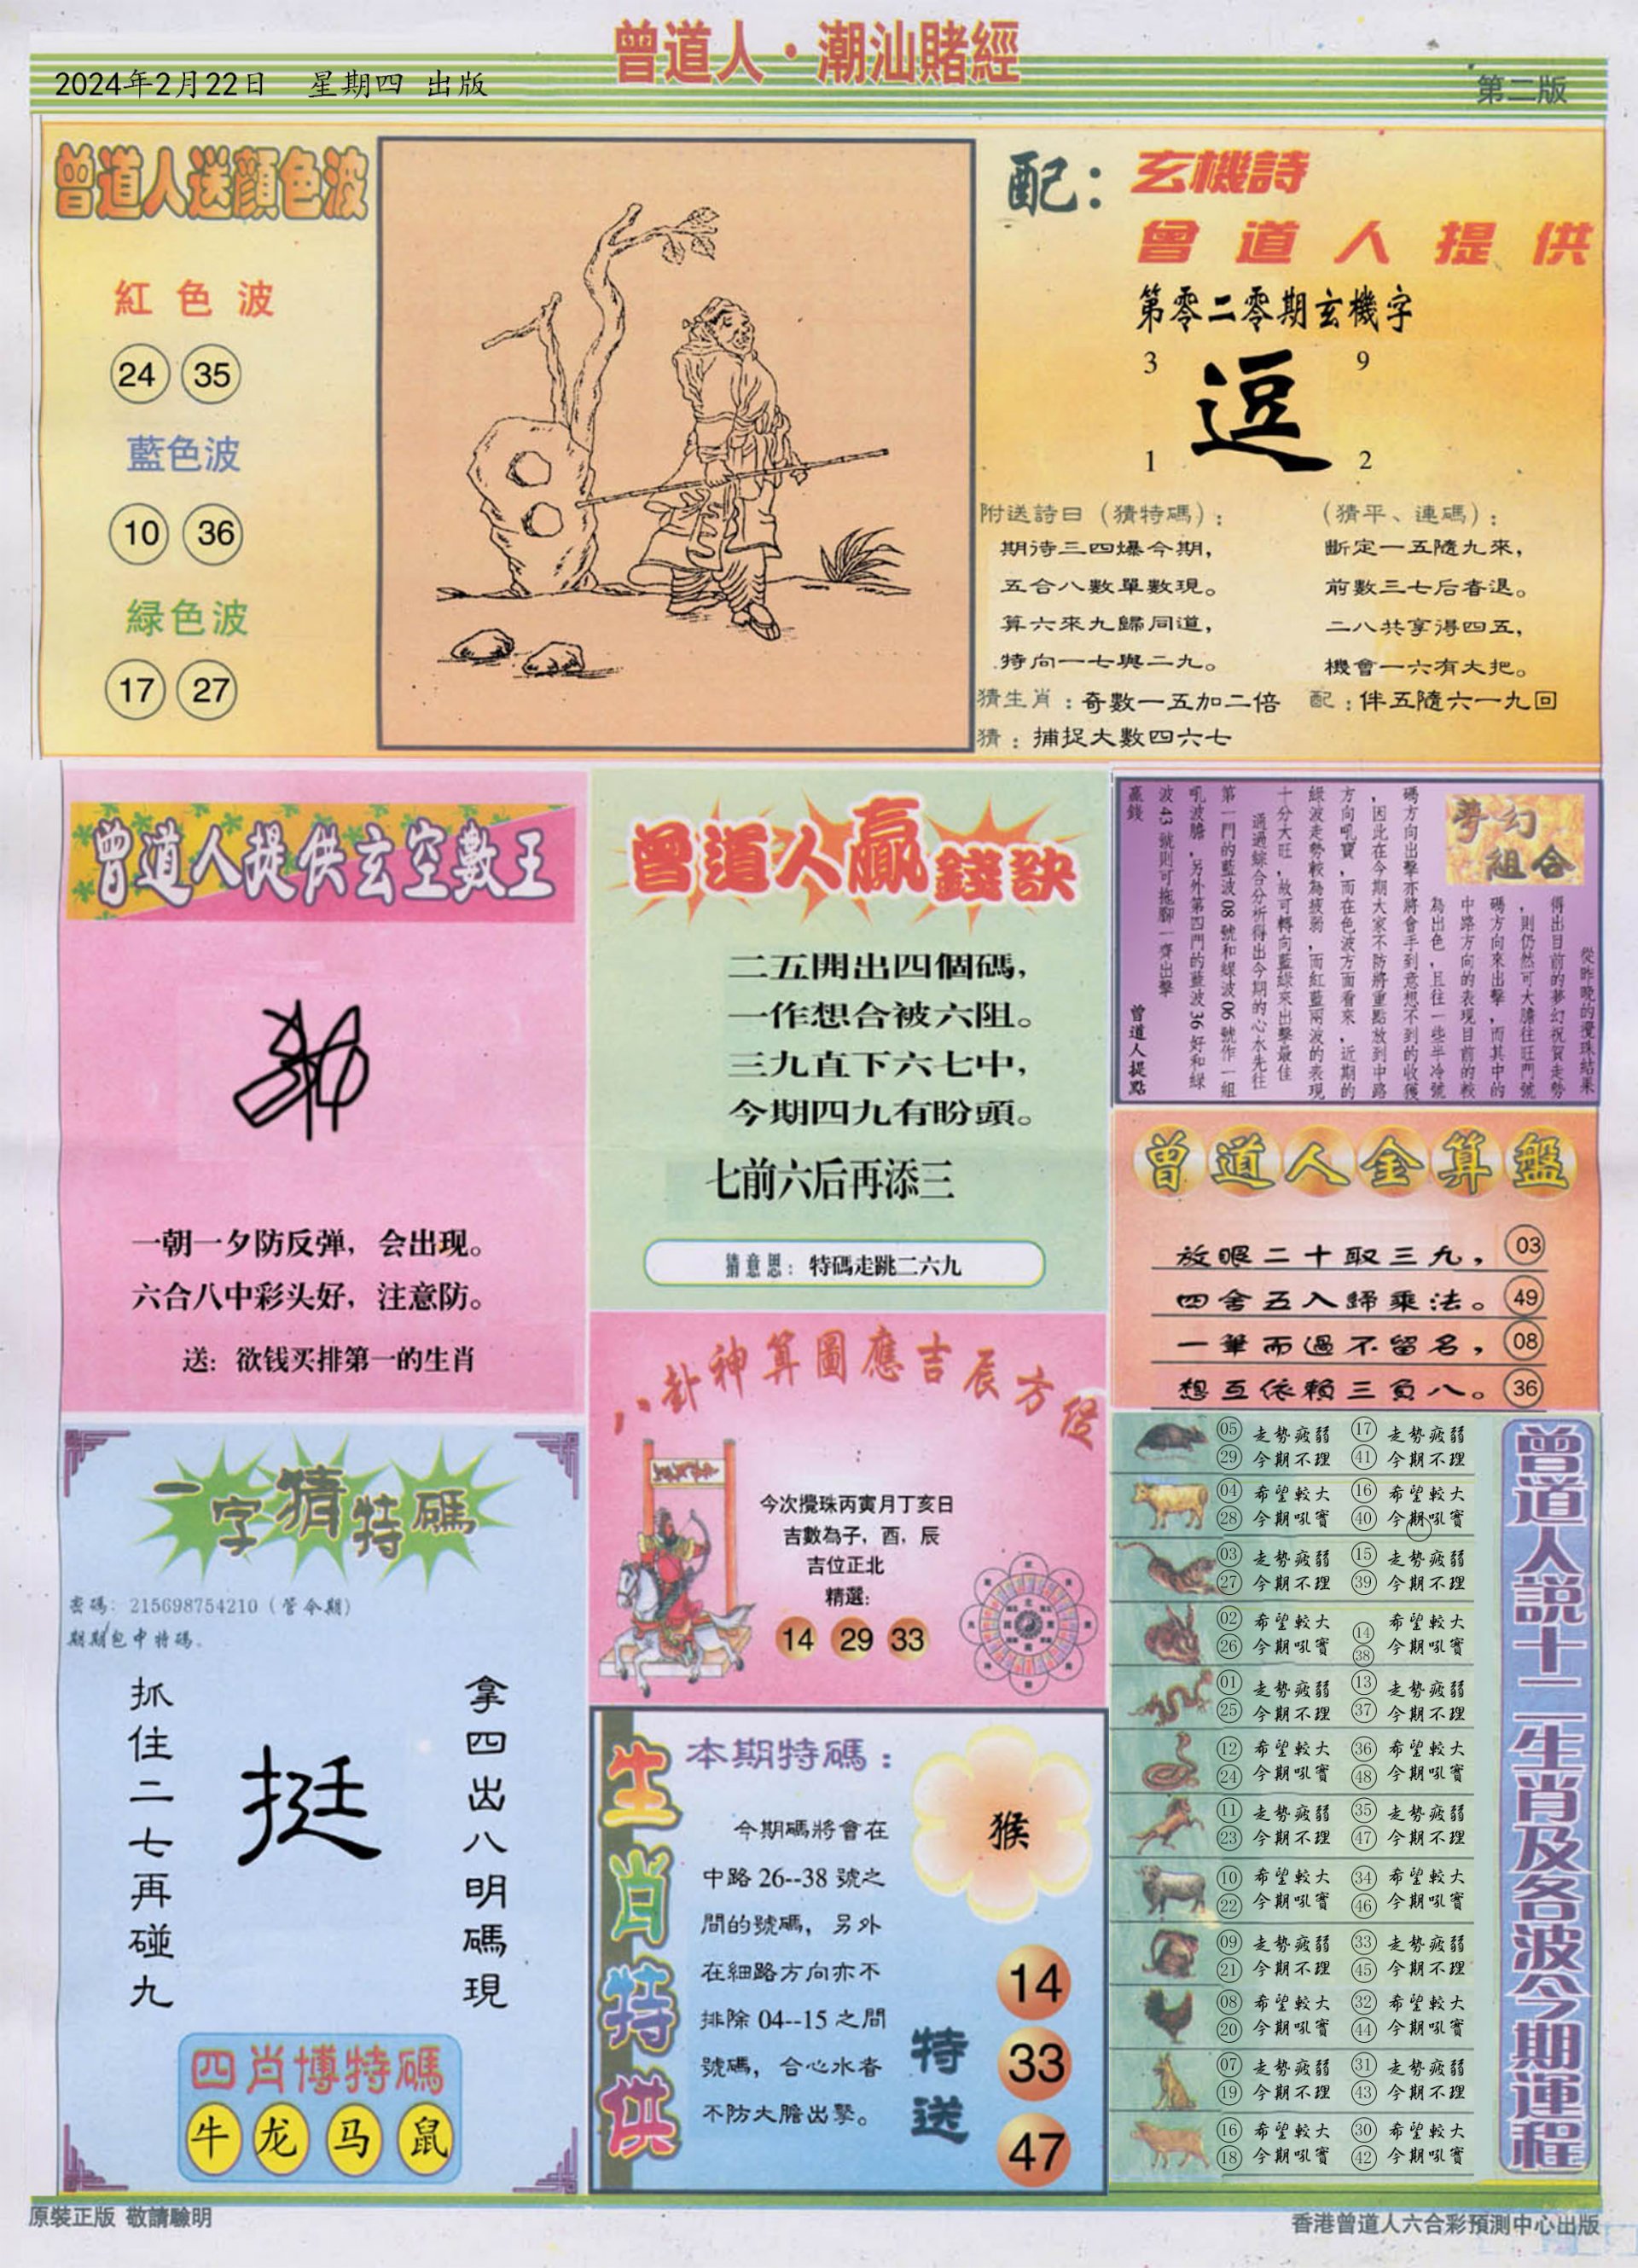 曾道人·潮汕賭經
2024年2月22日 星期四 出版
第二版
曾道人送顔色波
紅色波
24 35
藍色波
10 36
緑色波
17 27
配：玄機詩
曾道人提供
第零二零期玄機字
3 9
逗
1 2
附送詩曰（猜特碼）：
期待三四爆今期，
五合八數單數現。
算六來九歸同道，
特向一七與二九。
（猜平、連碼）：
斷定一五隨九來，
前數三七后者退。
二八共享得四五，
機會一六有大把。
猜生肖：奇數一五加二倍 配：伴五隨六一九回
猜：捕捉大數四六七
曾道人提供玄空數王
一朝一夕防反弹，会出现。
六合八中彩头好，注意防。
送：欲钱买排第一的生肖
曾道人贏錢訣
二五開出四個碼，
一作想合被六阻。
三九直下六七中，
今期四九有盼頭。
七前六后再添三
猜意思：特碼走跳二六九
夢幻組合
從昨晚的攪珠結果
得出目前的夢幻祝賀走勢
，則仍然可大膽往旺門號
碼方向來出擊，而其中的
中路方向的表現目前的較
為出色，且往一些半冷號
碼方向出擊亦將會手到意想不到的收獲
，因此在今期大家不防將重點放到中路
方向吼寶，而在色波方面看來，近期的
綠波走勢較為疲弱，而紅藍兩波的表現
十分大旺，故可轉向藍綠來出擊最佳
通過綜合分析得出今期的心水先往
第一門的藍波08號和綠波06號作一組
吼波膽，另外第四門的藍波36好和綠
波43號則可拖腳一齊出擊
贏錢
曾道人提點
曾道人金算盤
放眼二十取三九， 03
四舍五入歸乘法。 49
一筆而過不留名， 08
想互依賴三負八。 36
八卦神算圖應吉辰方位
今次攪珠丙寅月丁亥日
吉數為子，酉，辰
吉位正北
精選：
14 29 33
一字猜特碼
密碼：215698754210（管今期）
期期包中特碼。
抓住二七再碰九
挺
拿四出八明碼現
四肖博特碼
牛 龙 马 鼠
生肖特供
本期特碼：
今期碼將會在
中路26--38號之
間的號碼，另外
在細路方向亦不
排除04--15之間
號碼，合心水者
不防大膽出擊。
猴
特送
14
33
47
05 走勢疲弱 17 走勢疲弱
29 今期不理 41 今期不理
04 希望較大 16 希望較大
28 今期吼寶 40 今期吼寶
03 走勢疲弱 15 走勢疲弱
27 今期不理 39 今期不理
02 希望較大 14 希望較大
26 今期吼寶 38 今期吼寶
01 走勢疲弱 13 走勢疲弱
25 今期不理 37 今期不理
12 希望較大 36 希望較大
24 今期吼寶 48 今期吼寶
11 走勢疲弱 35 走勢疲弱
23 今期不理 47 今期不理
10 希望較大 34 希望較大
22 今期吼寶 46 今期吼寶
09 走勢疲弱 33 走勢疲弱
21 今期不理 45 今期不理
08 希望較大 32 希望較大
20 今期吼寶 44 今期吼寶
07 走勢疲弱 31 走勢疲弱
19 今期不理 43 今期不理
16 希望較大 30 希望較大
18 今期吼寶 42 今期吼寶
曾道人說十二生肖及各波今期運程
原裝正版 敬請驗明
香港曾道人六合彩預測中心出版